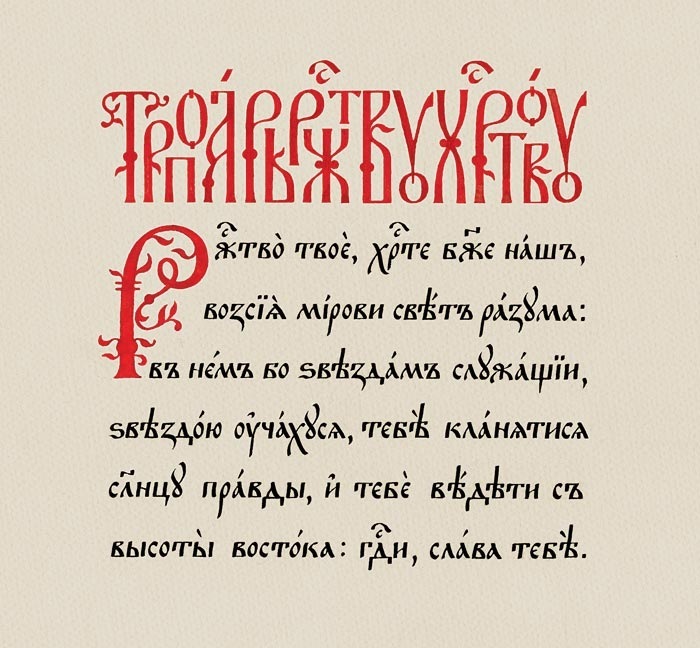 Тропа́рь рⷭ҇тжвꙋ хрⷭ҇то́вꙋ
Рж҇ⷭ҇тво̀ твоѐ, хрⷭ҇те́ бж҃е на́шъ,
возсїѧ̀ мі́рови свѣ́тъ ра́зꙋма:
въ не́мъ бо ѕвѣзда́мъ слꙋжа́щїи,
ѕвѣздо́ю ᲂу҆ча́хꙋсѧ, тебѣ̀ кла́нѧтисѧ
сл҃нцꙋ пра́вды, и҆ тебѐ вѣ́дѣти съ
высоты̀ восто́ка: гдⷭ҇и, сла́ва тебѣ̀.